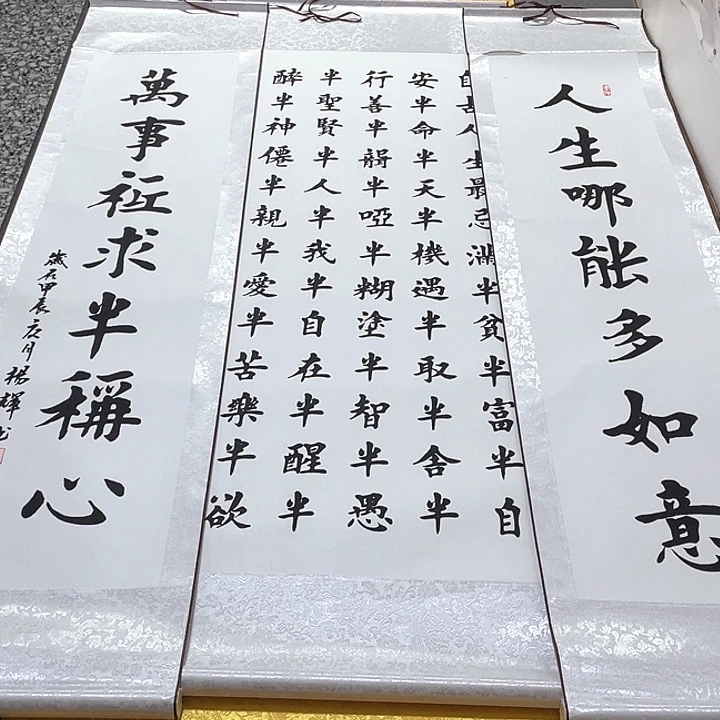 人生哪能多如意
自古人生最忌滿半貧半富半自
安半命半天半機遇半取半舍半
行善半聾半啞半糊塗半智半愚
半聖賢半人半我半自在半醒半
醉半神僊半親半愛半苦樂半欲
萬事祗求半稱心
歲在甲辰夏月楊輝书